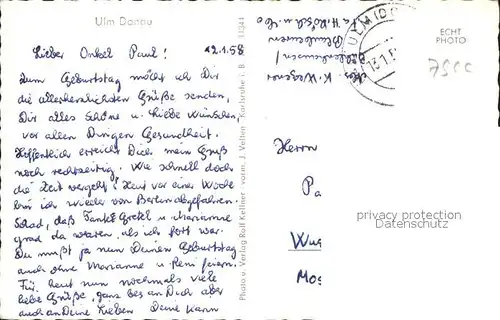 Ulm Donau
12.1.58
Lieber Onkel Paul!
Zum Geburtstag möcht ich Dir
die allerherzlichsten Grüße senden,
Dir alles Schöne u. Liebe wünschen,
vor allen Dingen Gesundheit.
Hoffentlich erreicht Dich mein Gruß
noch rechtzeitig. Wie schnell doch
die Zeit vergeht! Heut vor einer Woche
bin ich wieder von Berlin abgefahren.
Schad, daß Tante Gretel u. Marianne
grad da waren, als ich fort war.
Du mußt ja nun Deinen Geburtstag
auch ohne Marianne u. Reni feiern.
Für heut nun nochmals viele
liebe Grüße, ganz bes. an Dich aber
auch an Deine Lieben Deine Karin
Photo u. Verlag Rolf Kellner · vorm. J. Velten · Karlsruhe i. B.
Abs. K. Wagener
Blaubeuren
ULM (DO
ECHT
PHOTO
7900
Herrn
Pa
privacy protection
Wup
Mos